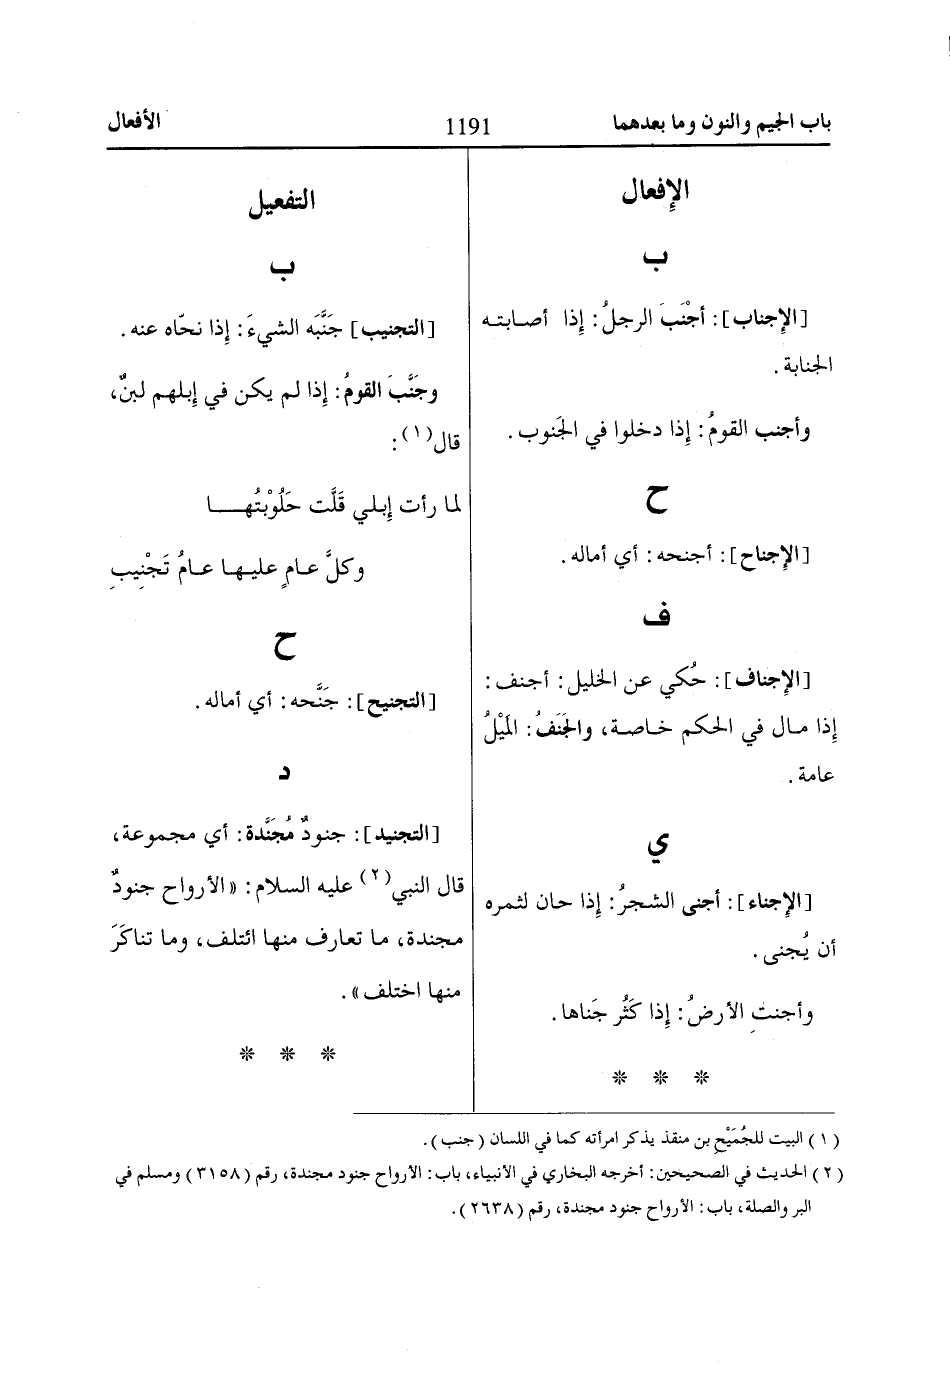 باب الجيم والنون وما بعدهما
1191
الأفعال
الإفعال
ب
[الإجناب]: أجْنَبَ الرجلُ: إذا أصابته
الجنابة.
وأجنب القومُ: إذا دخلوا في الجَنوب.
ح
[الإجناح]: أجنحه: أي أماله.
ف
[الإجناف]: حُكي عن الخليل: أجنف:
إذا مال في الحكم خاصة، والجَنَفُ: المَيْلُ
عامة.
ي
[الإجناء]: أجنى الشجرُ: إذا حان لثمره
أن يُجنى.
وأجنتِ الأرضُ: إذا كَثُر جَناها.
* * *
التفعيل
ب
[التجنيب] جَنَّبَه الشيءَ: إذا نحّاه عنه.
وجَنَّبَ القومُ: إذا لم يكن في إبلهم لبنٌ،
قال(١):
لما رأت إبلي قَلَّت حَلُوْبتُهـــا
وكلَّ عامٍ عليها عامُ تَجْنِيبِ
ح
[التجنيح]: جَنَّحه: أي أماله.
د
[التجنيد]: جنودٌ مُجَنَّدة: أي مجموعة،
قال النبي(٢) عليه السلام: «الأرواح جنودٌ
مجندة، ما تعارف منها ائتلف، وما تناكَرَ
منها اختلف».
* * *
(١) البيت للجُمَيْحِ بن منقذ يذكر امرأته كما في اللسان (جنب).
(٢) الحديث في الصحيحين: أخرجه البخاري في الأنبياء، باب: الأرواح جنود مجندة، رقم (٣١٥٨) ومسلم في
البر والصلة، باب: الأرواح جنود مجندة، رقم (٢٦٣٨).